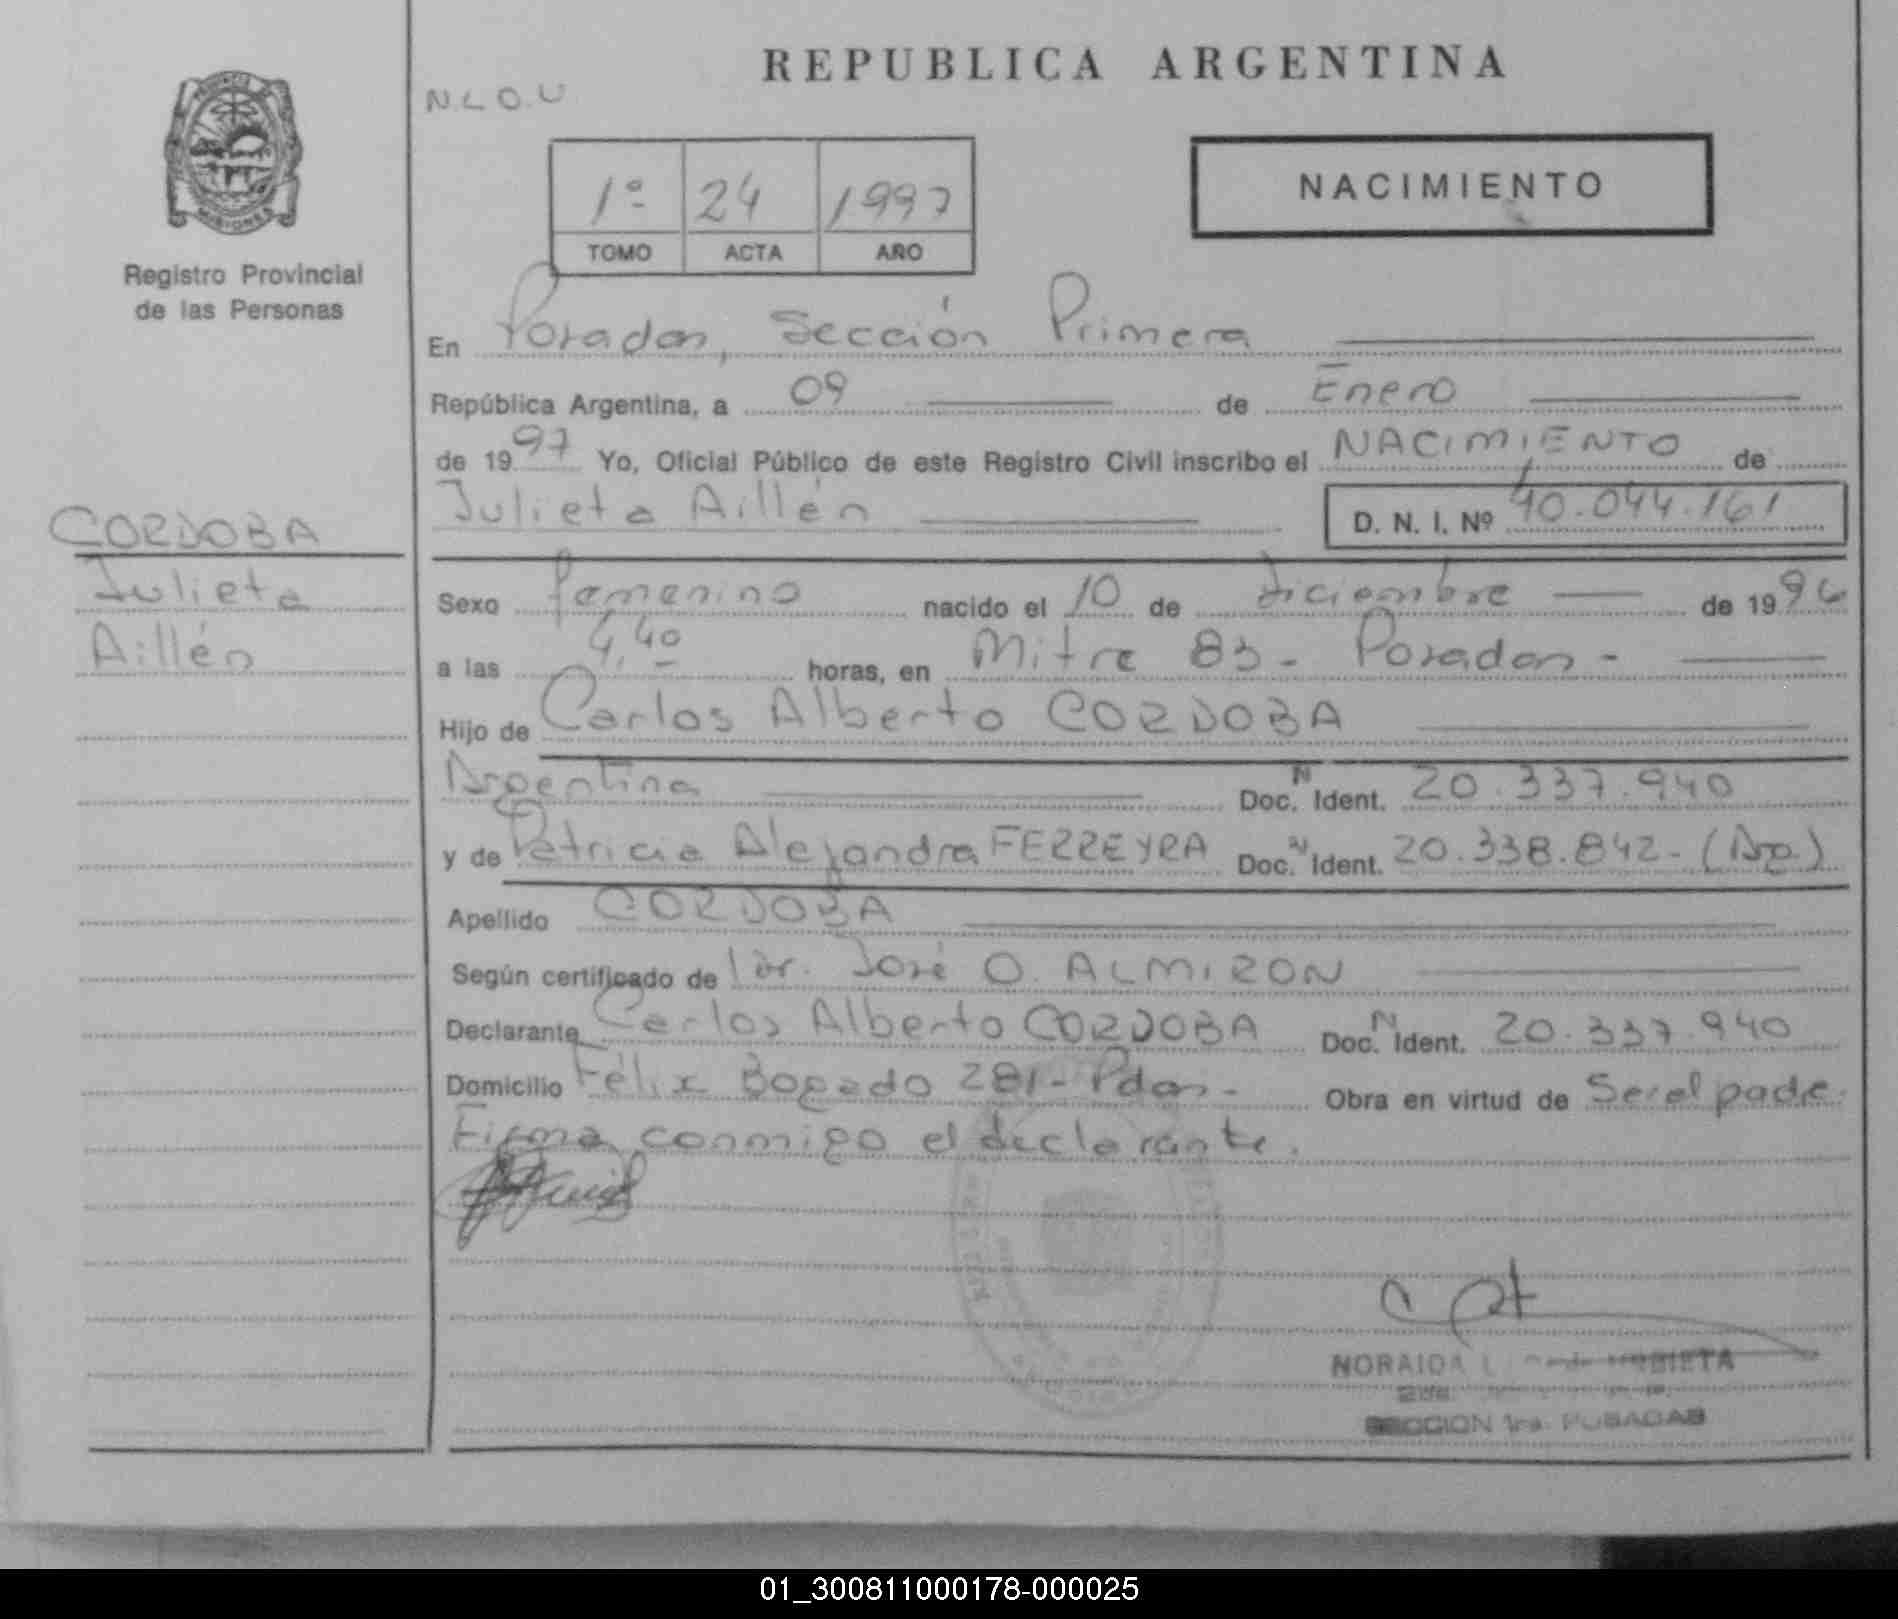 REPUBLICA ARGENTINA
N.L.O.U
1º 24 1997
TOMO ACTA AÑO
NACIMIENTO
MISIONES
Registro Provincial
de las Personas
En Posadas, Sección Primera
República Argentina, a 09 de Enero
de 1997 Yo, Oficial Público de este Registro Civil inscribo el NACIMIENTO de
Julieta Aillén D. N. I. Nº 40.044.161
CORDOBA
Julieta
Aillén
Sexo femenino nacido el 10 de diciembre de 1996
a las 4,40 horas, en Mitre 83 - Posadas -
Hijo de Carlos Alberto CORDOBA
Argentina Doc. N Ident. 20.337.940
y de Patricia Alejandra FERREYRA Doc. N Ident. 20.338.842 - (Arg.)
Apellido CORDOBA
Según certificado de Dr. José O. ALMIRON
Declarante Carlos Alberto CORDOBA Doc. N Ident. 20.337.940
Domicilio Félix Bogado 281 - Pdas - Obra en virtud de Ser el padre.
Firma conmigo el declarante.
NORAIDA
SECCION 1ra. POSADAS
01_300811000178-000025